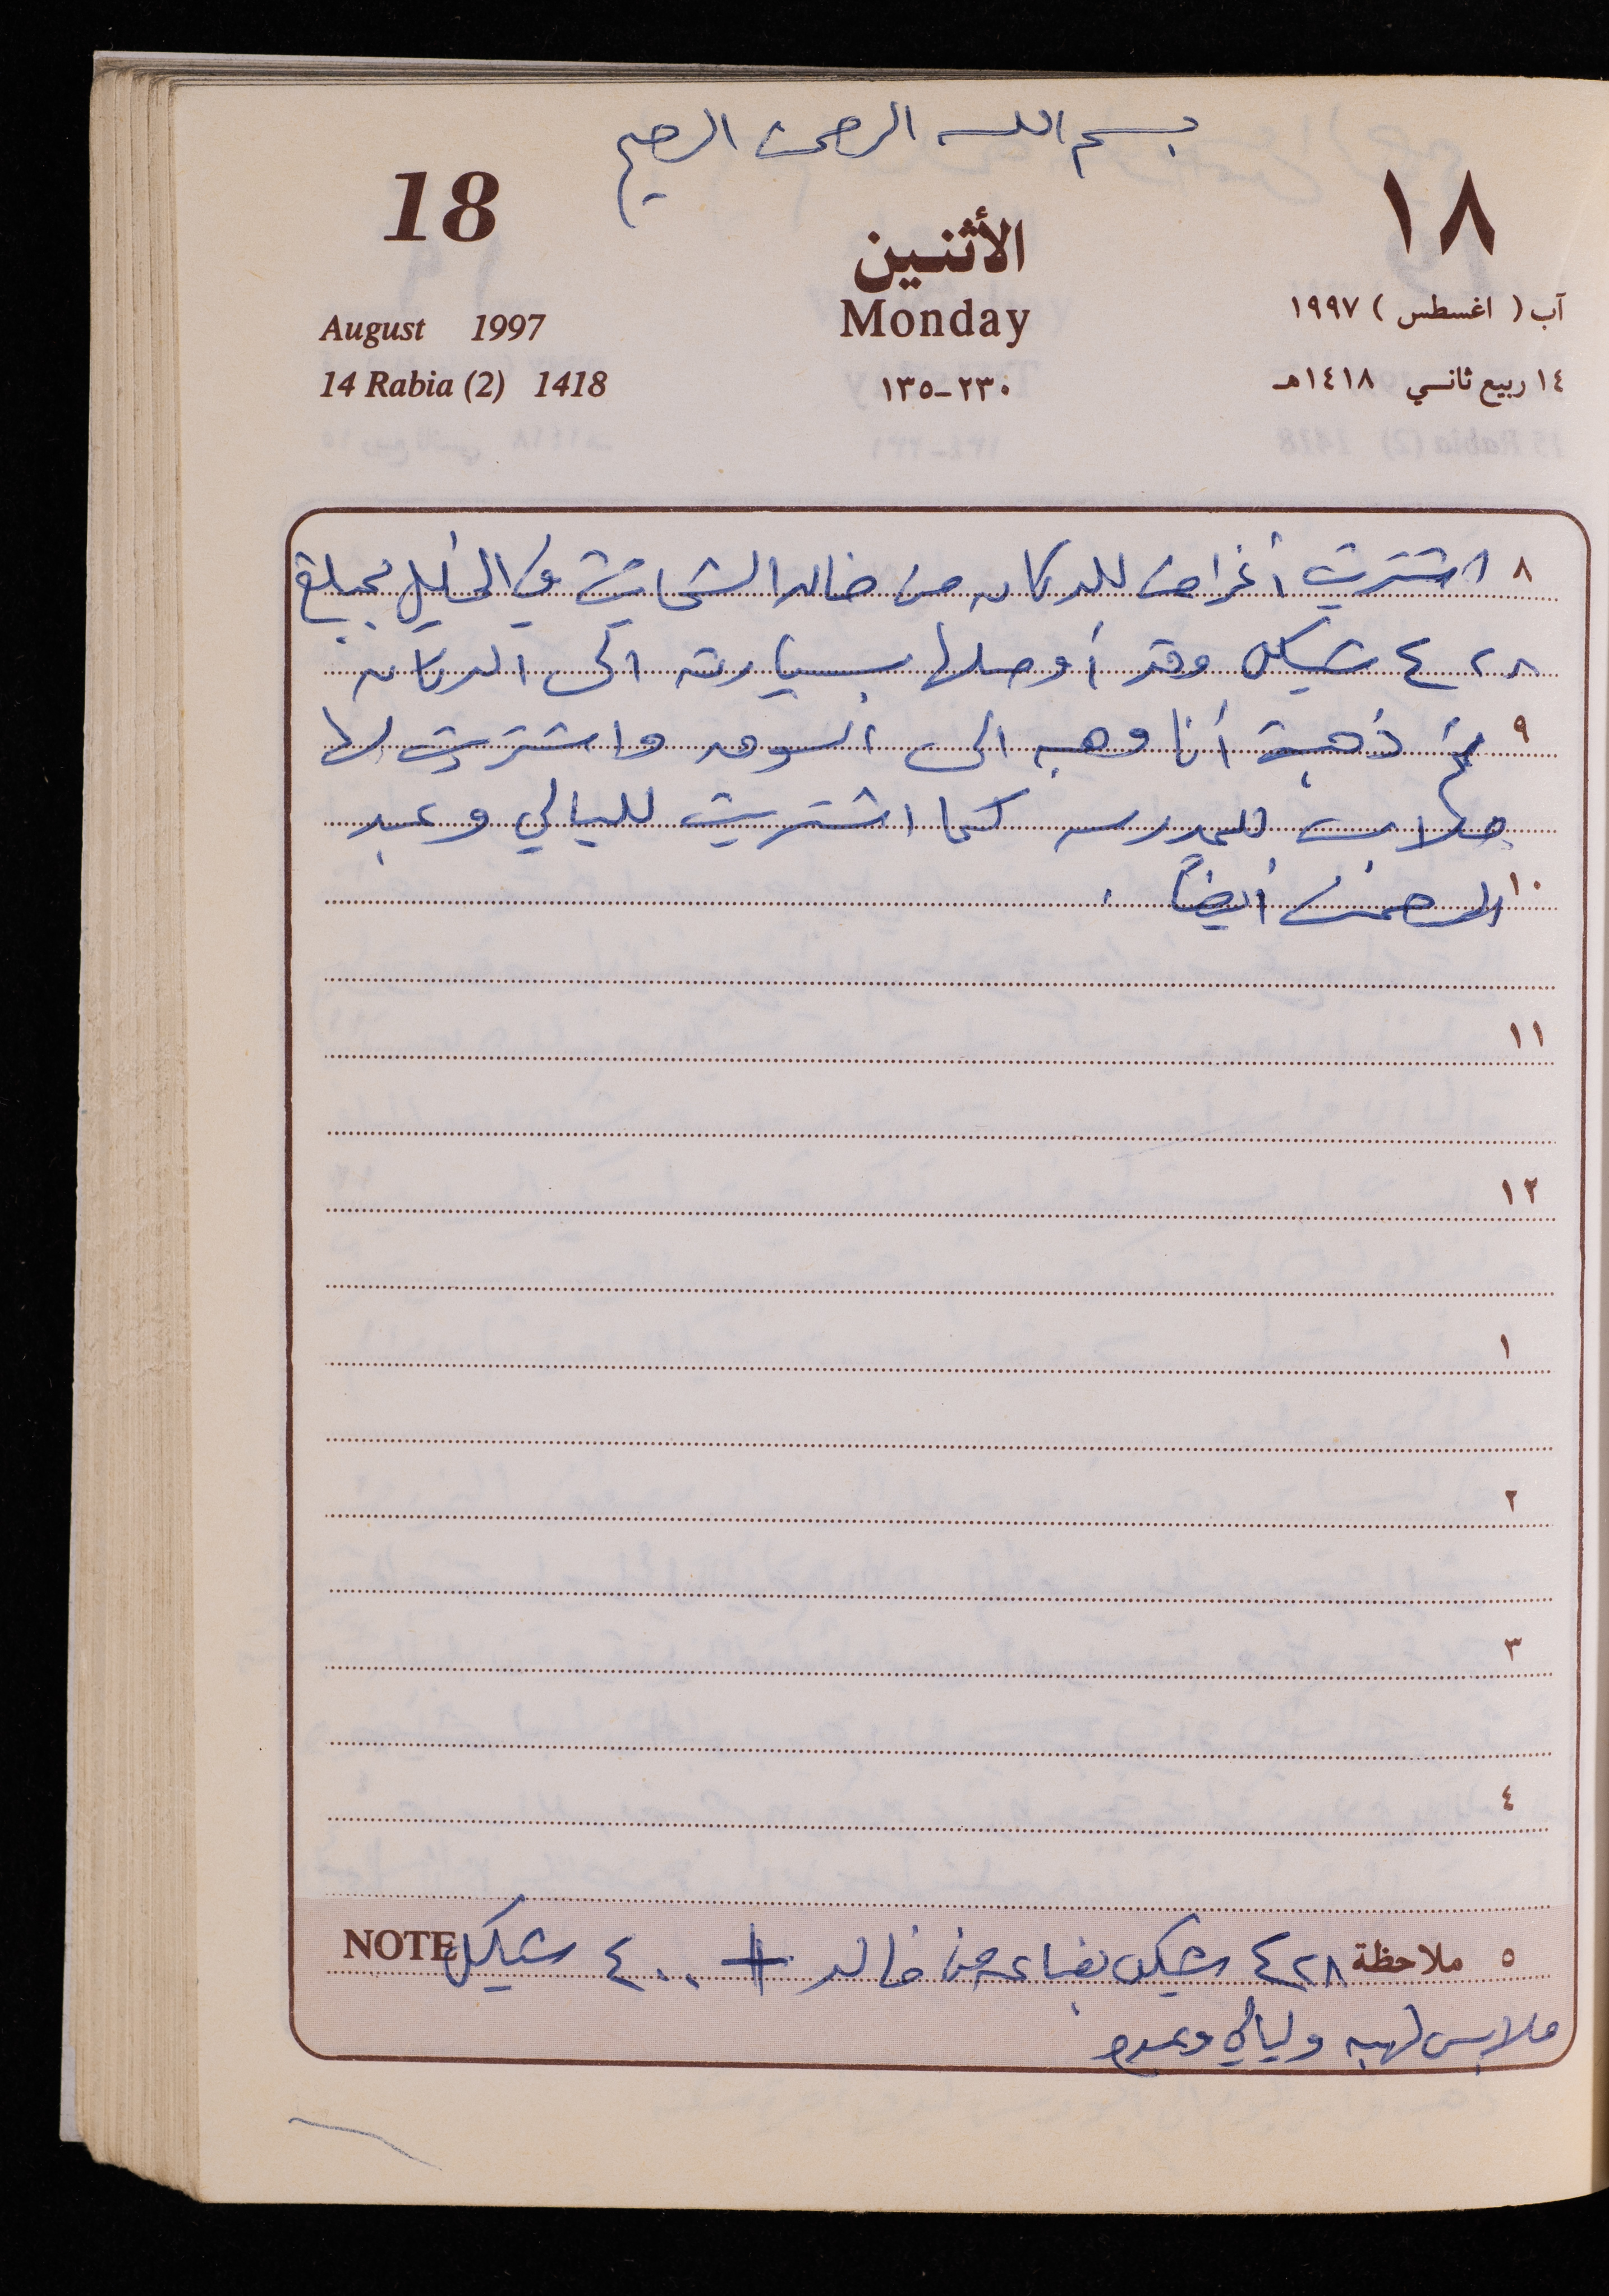 بسم الله الرحمن الرحيم
18
١٨
الأثنين
Monday
August 1997
آب ( اغسطس ) ١٩٩٧
14 Rabia (2) 1418
١٣٥-٢٣٠
١٤ ربيع ثانـي ١٤١٨هـ
٨ اشتريت أغراض للدكان من خالد في الخليل بمبلغ
٤٢٨ شيكل وقد أوصلها بسيارته الى الدكان
٩ ثم ذهبت أنا وهبه الى السوق واشتريت لها
ملابس للمدرسه كما اشتريت لليالي وعبد
١٠ الرحمن أيضاً .
١١
١٢
١
٢
٣
٤
٥ ملاحظة ٤٢٨ شيكل بضاعه من خالد + ٤٠٠ شيكل NOTE
ملابس لهبه وليالي